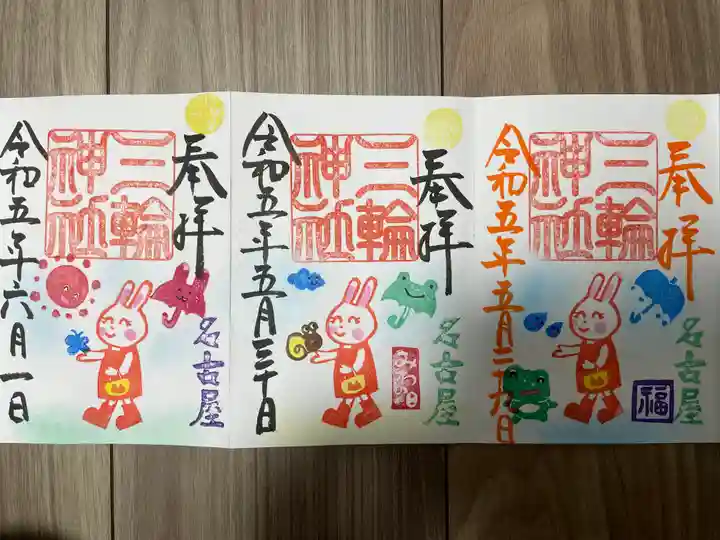 奉拝
三輪神社
令和五年五月二十九日
名古屋
福
奉拝
三輪神社
令和五年五月三十日
名古屋
奉拝
三輪神社
令和五年六月一日
名古屋